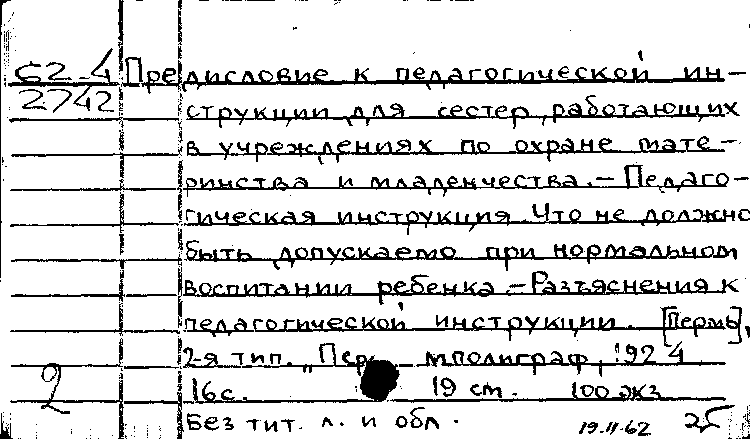 С2-4 Предисловие к педагогической ин-
2742 струкции для сестер, работающих
в учреждениях по охране мате-
ринства и младенчества. - Педаго-
гическая инструкция. Что не должно
быть допускаемо при нормальном
воспитании ребенка. - Разъяснения к
педагогической инструкции. [Пермь],
2-я тип. „Пер мполиграф", 1924
2 16 с. 19 см. 100 экз
Без тит. л. и обл. 19.II.62